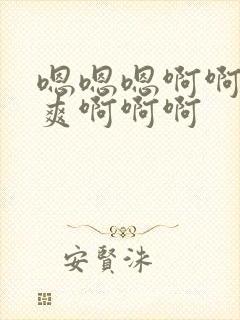 嗯嗯嗯啊啊
爽啊啊啊
安賢洙